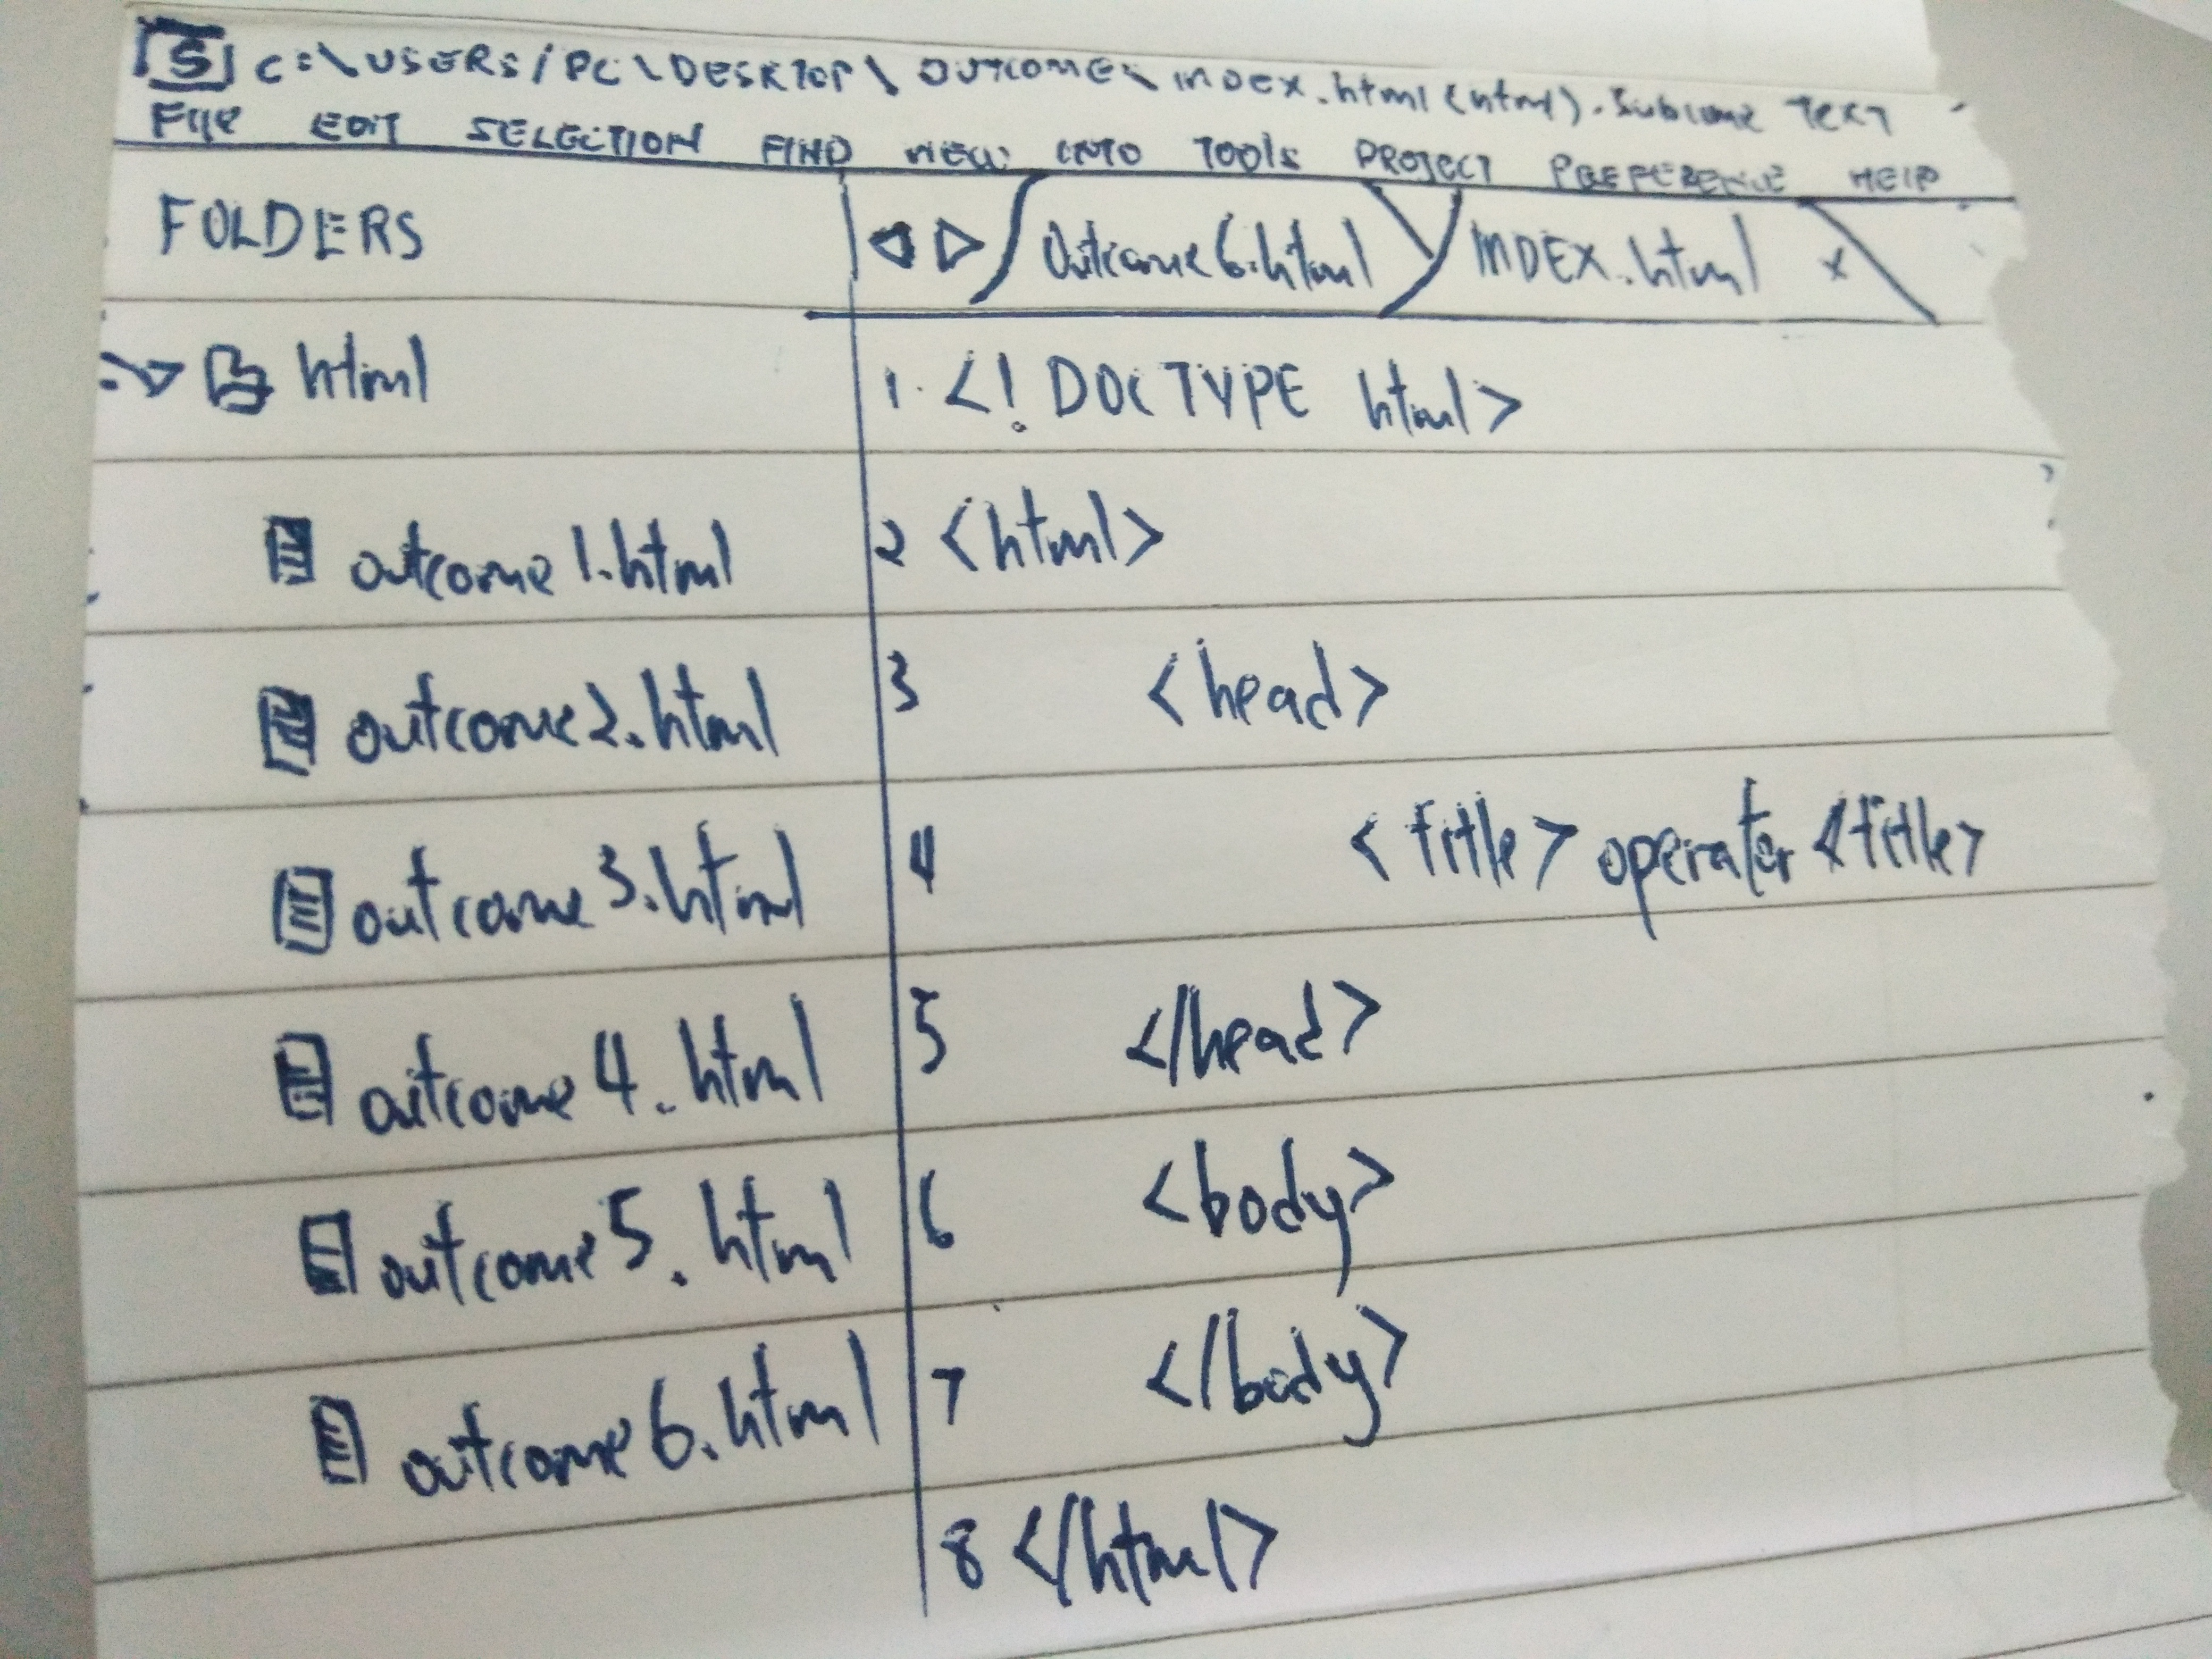 S C:\USERS/PC\DESKTOP\ OUTCOME\ INDEX.html (html). Sublime Text
File EDIT SELECTION FIND INTO Tools PROJECT PREFERENCE HELP
FOLDERS
Outcome 6.html
INDEX.html x
html
outcome 1.html
outcome 2.html
outcome 3.html
outcome 4.html
outcome 5.html
outcome 6.html
1. <! DOCTYPE html>
2 <html>
3 <head>
4 <title> operator <title>
5 </head>
6 <body>
7 </body>
8 </html>